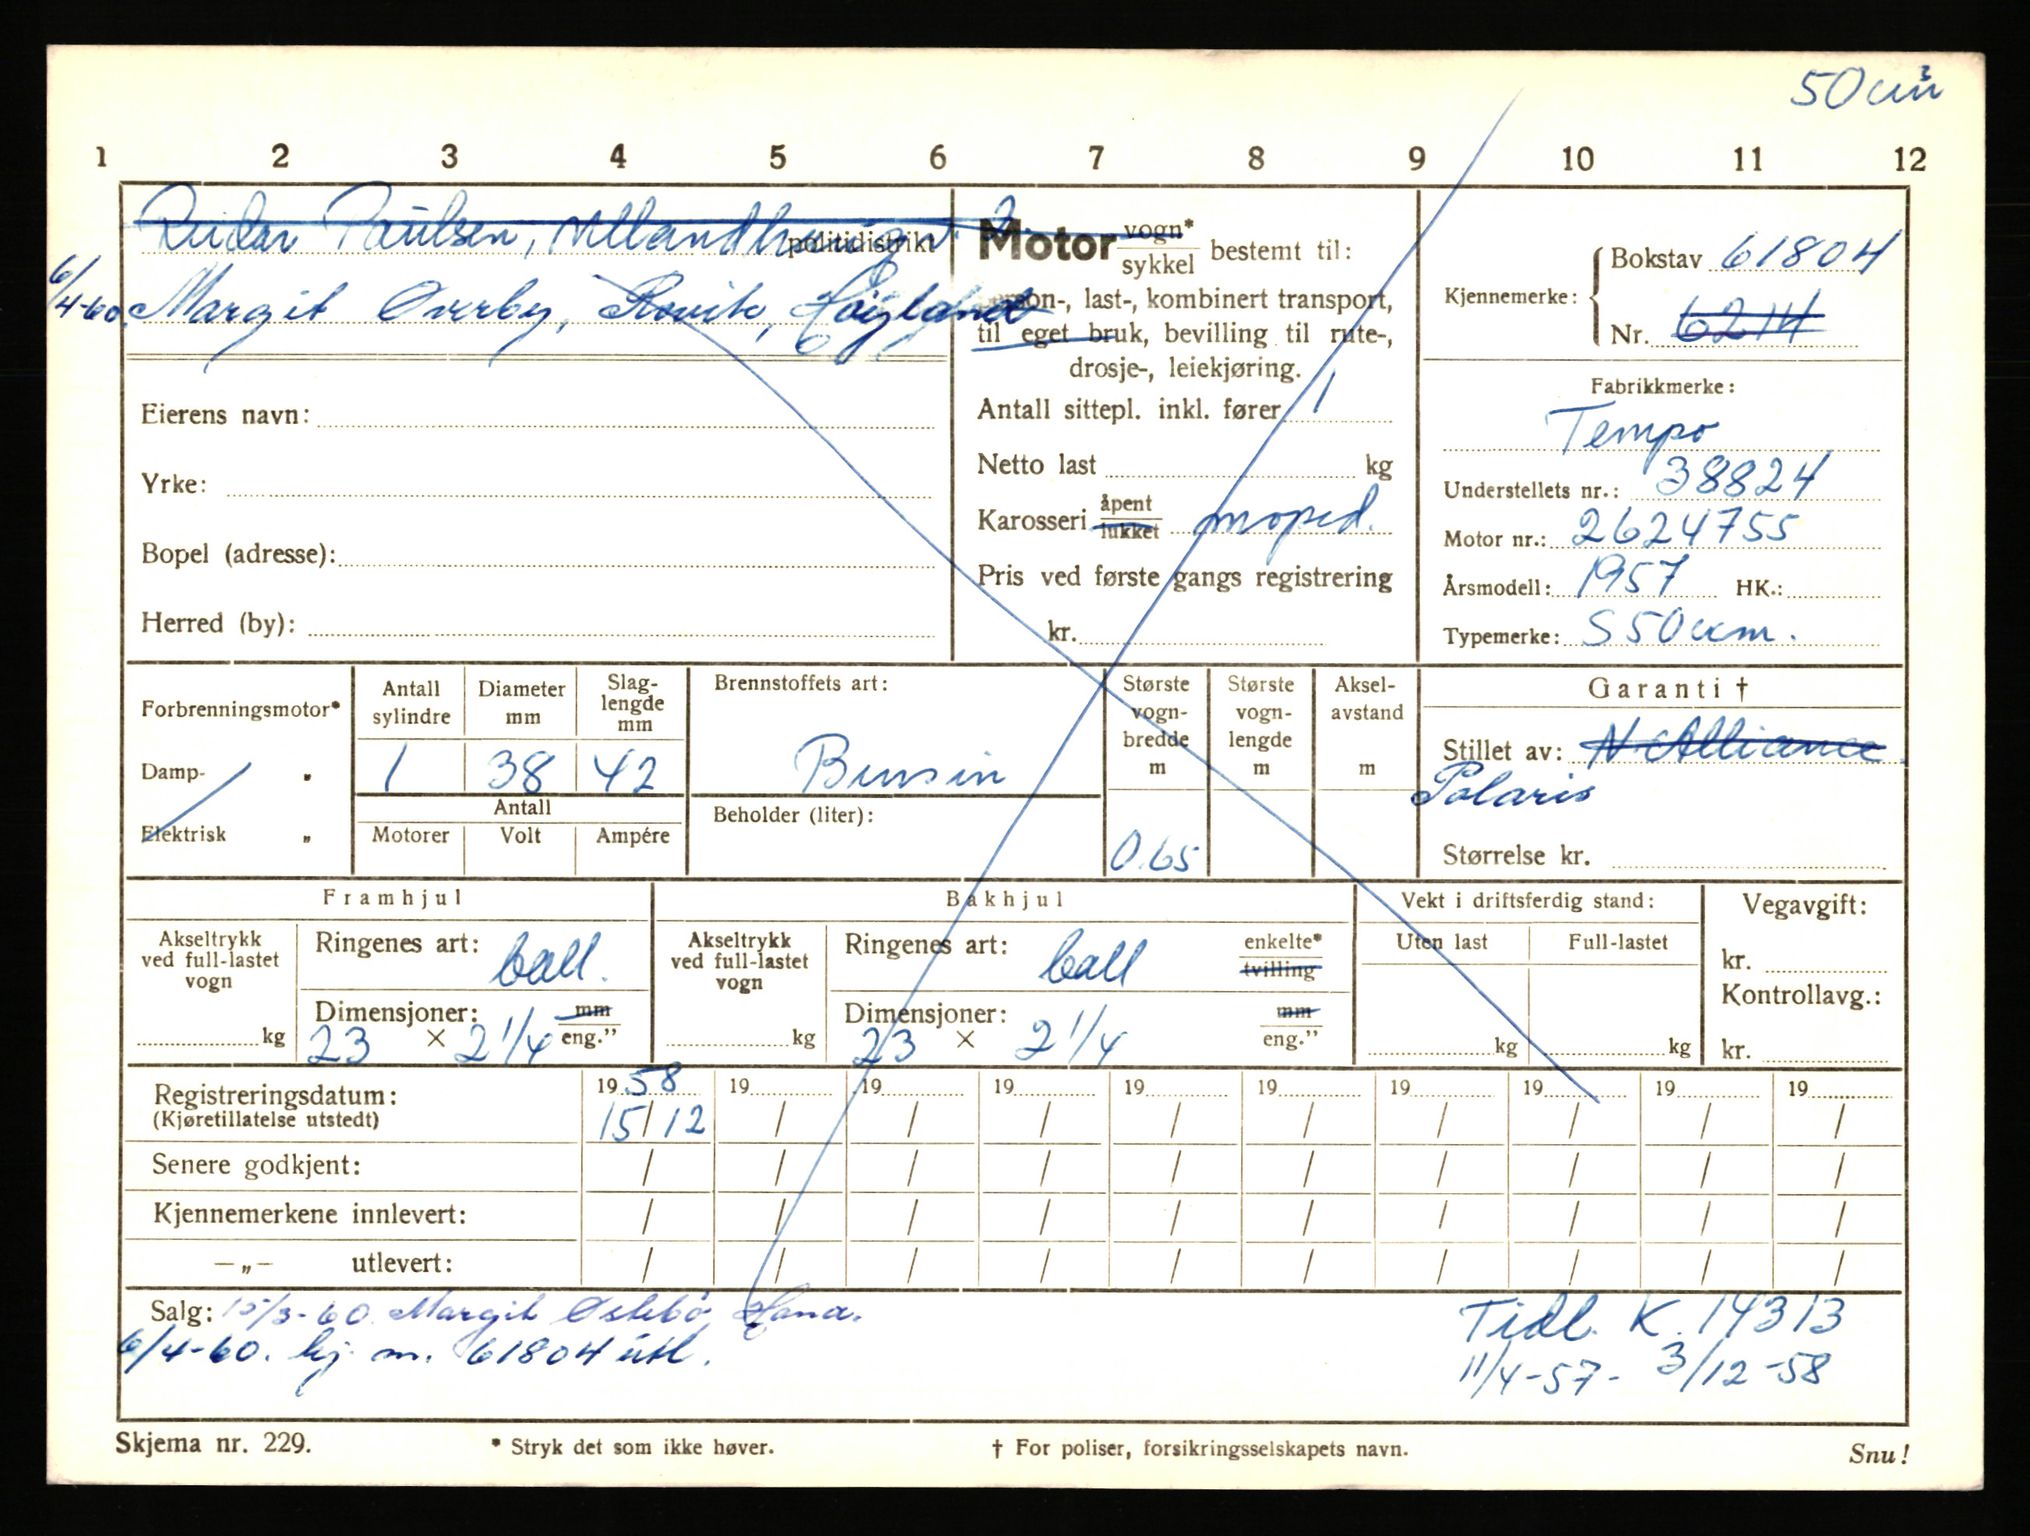 50 cm³
1 2 3 4 5 6 7 8 9 10 11 12
Reidar Paulsen,
politidistrikt
6/4-60. Margit Øverby, Høyland
Eierens navn:
Yrke:
Bopel (adresse):
Herred (by):
Motor vogn* sykkel bestemt til:
person-, last-, kombinert transport,
til eget bruk, bevilling til rute-,
drosje-, leiekjøring.
Antall sittepl. inkl. fører 1
Netto last kg
Karosseri åpent lukket moped.
Pris ved første gangs registrering
kr.
Kjennemerke: Bokstav 61804
Nr. 6214
Fabrikkmerke:
Tempo
Understellets nr.: 38824
Motor nr.: 2624755
Årsmodell: 1957 HK.:
Typemerke: S 50 ccm.
Forbrenningsmotor*
Damp- „
Elektrisk „
Antall sylindre 1
Diameter mm 38
Slag-lengde mm 42
Antall
Motorer Volt Ampére
Brennstoffets art:
Bensin
Beholder (liter):
Største vogn-bredde m 0.65
Største vogn-lengde m
Aksel-avstand m
Garanti †
Stillet av: N Alliance
Polaris
Størrelse kr.
Framhjul
Akseltrykk ved full-lastet vogn
kg
Ringenes art: ball.
Dimensjoner: mm
23 × 2 1/4 eng.”
Bakhjul
Akseltrykk ved full-lastet vogn
kg
Ringenes art: ball enkelte* tvilling
Dimensjoner: mm
23 × 2 1/4 eng.”
Vekt i driftsferdig stand:
Uten last Full-lastet
kg kg
Vegavgift:
kr.
Kontrollavg.:
kr.
Registreringsdatum: 19 58 19 19 19 19 19 19 19 19 19
(Kjøretillatelse utstedt) 15/12 / / / / / / / / /
Senere godkjent: / / / / / / / / / /
Kjennemerkene innlevert: / / / / / / / / / /
—„— utlevert: / / / / / / / / / /
Salg: 15/3-60 Margit Østebø, Hana.
6/4-60. kj. m. 61804 utl.
Tidl. K. 14313
11/4-57 - 3/12-58
Skjema nr. 229. * Stryk det som ikke høver. † For poliser, forsikringsselskapets navn. Snu!